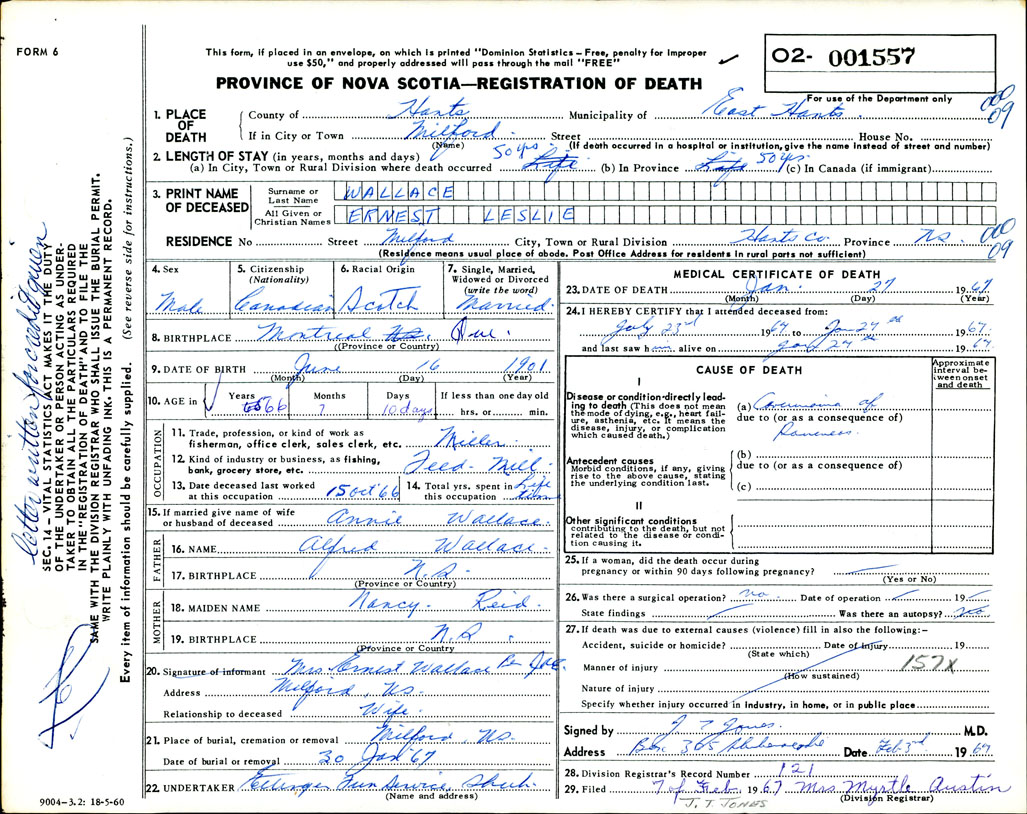 FORM 6
This form, if placed in an envelope, on which is printed "Dominion Statistics – Free, penalty for improper
use $50," and properly addressed will pass through the mail "FREE"
O2- 001557
For use of the Department only
PROVINCE OF NOVA SCOTIA—REGISTRATION OF DEATH
000
09
1. PLACE OF DEATH
County of Hants Municipality of East Hants
If in City or Town Milford Street House No.
(Name) (If death occurred in a hospital or institution, give the name instead of street and number)
2. LENGTH OF STAY (in years, months and days)
(a) In City, Town or Rural Division where death occurred Life 50 yrs (b) In Province Life 50 yrs (c) In Canada (if immigrant)
3. PRINT NAME OF DECEASED
Surname or Last Name WALLACE
All Given or Christian Names ERMEST LESLIE
RESIDENCE No Street Milford City, Town or Rural Division Hants Co Province N.S. 000
09
(Residence means usual place of abode. Post Office Address for residents in rural parts not sufficient)
4. Sex
Male
5. Citizenship
(Nationality)
Canadian
6. Racial Origin
Scotch
7. Single, Married,
Widowed or Divorced
(write the word)
Married
8. BIRTHPLACE Montreal N.S. Que.
(Province or Country)
9. DATE OF BIRTH June 16 1901
(Month) (Day) (Year)
10. AGE in
Years 66
Months 7
Days 10 days
If less than one day old
hrs. or min.
OCCUPATION
11. Trade, profession, or kind of work as
fisherman, office clerk, sales clerk, etc. Miller
12. Kind of industry or business, as fishing,
bank, grocery store, etc. Feed Mill
13. Date deceased last worked
at this occupation 15 Oct '66
14. Total yrs. spent in
this occupation Life time
15. If married give name of wife
or husband of deceased Annie Wallace
FATHER
16. NAME Alfred Wallace
17. BIRTHPLACE N.S.
(Province or Country)
MOTHER
18. MAIDEN NAME Nancy Reid
19. BIRTHPLACE N.S.
(Province or Country)
20. Signature of informant Mrs Ernest Wallace Per
Address Milford, N.S.
Relationship to deceased Wife
21. Place of burial, cremation or removal Milford, N.S.
Date of burial or removal 30 Jan '67
22. UNDERTAKER Ettinger Fun Service, Shub.
(Name and address)
MEDICAL CERTIFICATE OF DEATH
23. DATE OF DEATH Jan. 27 1967
(Month) (Day) (Year)
24. I HEREBY CERTIFY that I attended deceased from:
July 23rd 1967 to Jan 27th 1967
and last saw him alive on Jan 27th 1967
CAUSE OF DEATH
Approximate interval between onset and death
I
Disease or condition directly leading to death (This does not mean the mode of dying, e.g., heart failure, asthenia, etc. It means the disease, injury, or complication which caused death.)
(a) Carcinoma of
due to (or as a consequence of)
Pancreas
Antecedent causes
Morbid conditions, if any, giving rise to the above cause, stating the underlying condition last.
(b)
due to (or as a consequence of)
(c)
II
Other significant conditions
contributing to the death, but not related to the disease or condition causing it.
25. If a woman, did the death occur during
pregnancy or within 90 days following pregnancy?
(Yes or No)
26. Was there a surgical operation? No Date of operation 19
State findings Was there an autopsy? No
27. If death was due to external causes (violence) fill in also the following:–
Accident, suicide or homicide? Date of injury 19
(State which)
Manner of injury 157X
(How sustained)
Nature of injury
Specify whether injury occurred in industry, in home, or in public place
Signed by J T Jones M.D.
Address Box 365 Date Feb 3rd 1967
28. Division Registrar's Record Number 121
29. Filed 7 of Feb. 1967 Mrs Myrtle Austin
(Division Registrar)
J. T. JONES
9004–3.2: 18-5-60
letter written for credit given
SEC. 14 – VITAL STATISTICS ACT MAKES IT THE DUTY
OF THE UNDERTAKER OR PERSON ACTING AS UNDER-
TAKER TO OBTAIN ALL THE PARTICULARS REQUIRED
IN THE "REGISTRATION OF DEATH" AND TO FILE THE
SAME WITH THE DIVISION REGISTRAR WHO SHALL ISSUE THE BURIAL PERMIT.
WRITE PLAINLY WITH UNFADING INK. THIS IS A PERMANENT RECORD.
Every item of information should be carefully supplied. (See reverse side for instructions.)